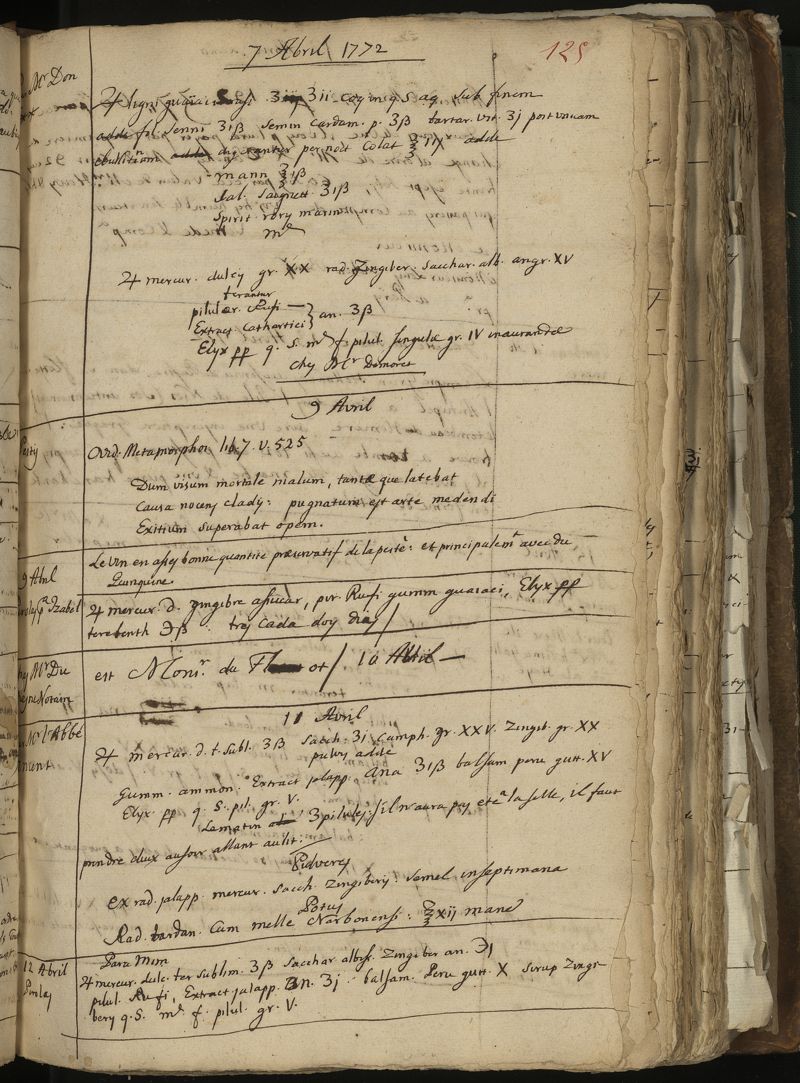 7 Abril 1772
125
Mr Don
♃ ligni guaiaci ʒij coq in q S aq sub finem
adde fol senni ʒiß semin Cardam. p. ʒß tartar. vit. ʒj post unicam
ebullition digerantur per noct Colat adde
mann ℥iß
Sal. Saignett. ʒiß
Spirit rory marin
m.
♃ mercur. dulcy gr. XX rad. Zingiber. Sacchar. alb. an gr. XV
terantur
pilular. Rufi
Extract Cathartici } an. ʒß
Elyx pp q. S. m. f. pilul. singulæ gr. IV inaurandæ
Chez Mr Demoret
9 Avril
Ovid. Metamorphos. lib. 7. v. 525
Dum visum mortale malum, tantæque latebat
Causa nocens cladys: pugnatum est arte medendi
Exitium superabat opem.
Le vin en assez bonne quantité præservatif de la peste: et principalemt avec du
Quinquine
9 Abril
Izabel
♃ mercur. d. Zingibre assucar, pir. Rufi gumm guaiaci, Elyx pp
terebenth ℈ß tres Cada doy dias
Mr Du
Notaire
est Monsr. du ot / 10 Abril
11 Avril
Mr l'Abbé
♃ mercur. d. t. subl. ʒß Sacch. ʒi Camph. gr. XXV. Zingib. gr. XX
pulvis adde
Gumm. ammon. Extract jalapp. ana ʒiß balsam peru gutt. XV
Elyx pp q. S. pil. gr. V.
Le matin 3 pilules: s'il n'aura pas eté a la selle, il faut
prendre deux au soir allant au lit.
Pulverys
Ex rad. jalapp. mercur. Sacch. Zingiberys: semel in septimana
Potus
Rad. bardan. Cum melle Narbonensi: ℥xij mane
12 Abril
Para Mim
♃ mercur. dulc. ter sublim. ʒß Sacchar albiss. Zingiber an. ℈j
pilul. Rufi, Extract jalapp. an. ʒj. balsam. Peru gutt. X Sirup Zingi-
berys q. S. m. f. pilul. gr. V.